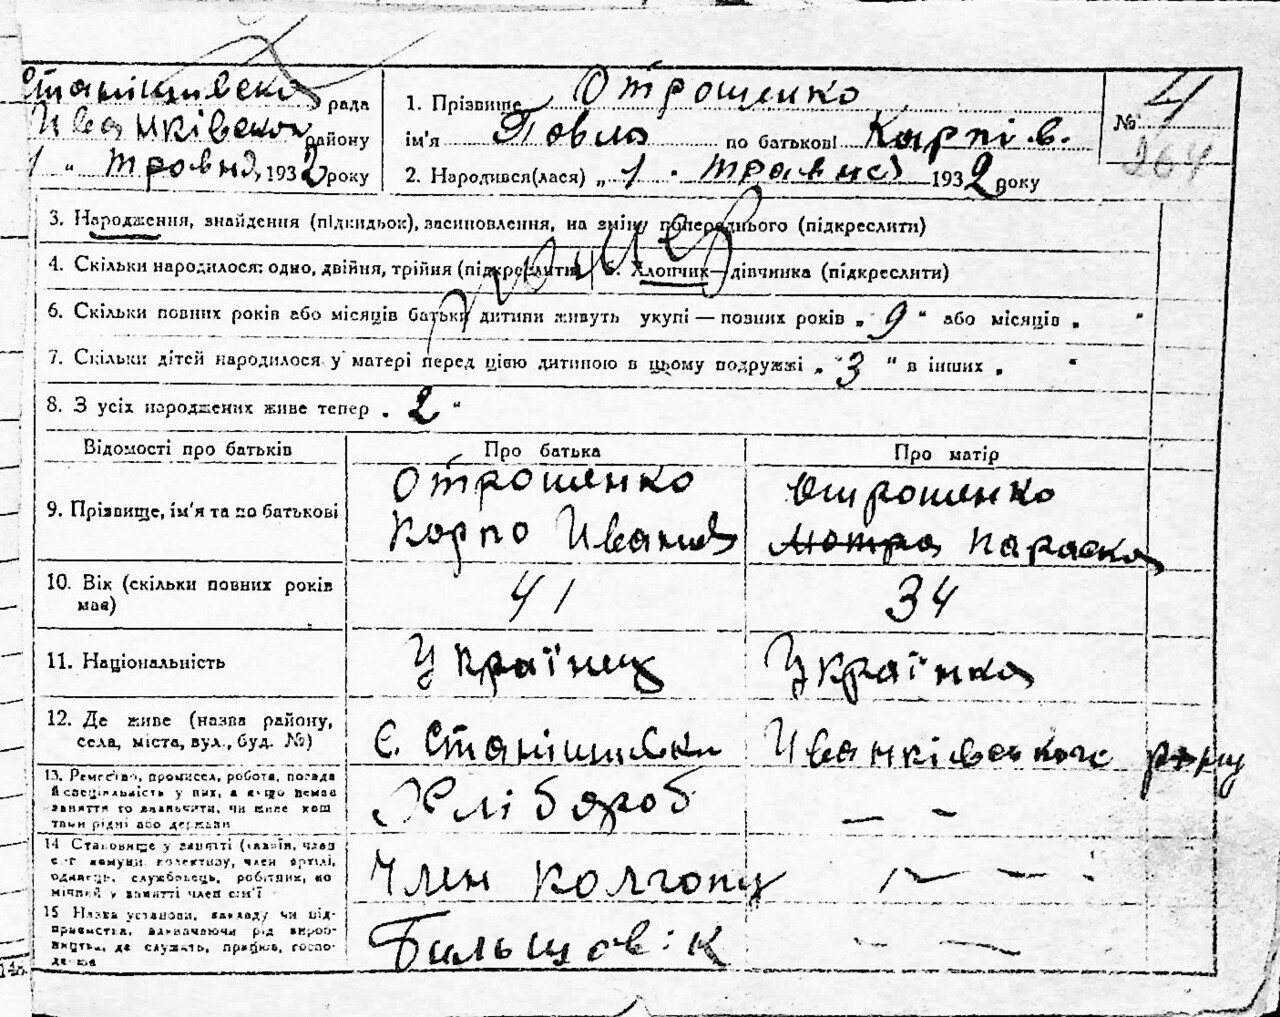 Станішивска рада
Иванківскои району
1 " травня, 1932 року
1. Прізвище Отрошенко
ім'я Повло по батькові Карпів.
2. Народився(лася) „ 1 . травня 1932 року
№ 4
264
3. Народження, знайдення (підкидьок), засиновлення, на зміну попереднього (підкреслити)
4. Скільки народилося: одно, двійня, трійня (підкреслити) 5. Хлопчик—дівчинка (підкреслити)
помер
6. Скільки повних років або місяців батьки дитини живуть укупі — повних років „ 9 " або місяців „ "
7. Скільки дітей народилося у матері перед цією дитиною в цьому подружжі „ 3 " в інших „ "
8. З усіх народжених живе тепер „ 2 "
Відомості про батьків
Про батька
Про матір
9. Прізвище, ім'я та по батькові
Отрошенко
Корпо Иванов
Отрошенко
Мотра Параска
10. Вік (скільки повних років має)
41
34
11. Національність
Українец
Українка
12. Де живе (назва району, села, міста, вул., буд. №)
с. Станішивка
Иванківського р-ну
13. Ремество, промисел, робота, посада й спеціяльність у них, а якщо немає заняття то зазначити, чи живе коштами рідні або держави
Хлібороб
— -
14 Становище у занятті (хазяїн, член с-г комуни, колективу, член артілі, одинець, службовець, робітник, помічний у занятті член сім'ї
Член колгопу
— — -
15 Назва установи, закладу чи підприємства, зазначаючи рід виробництва, де служить, працює, господарює
Бильшовік
— —